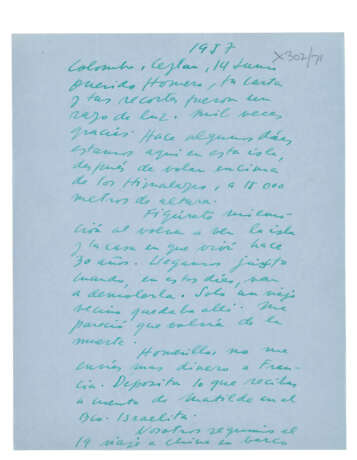 1957
X302/71
Colombo, Ceylan, 14 Junio
Querido Homero, tu carta
y tus recortes fueron un
rayo de luz. Mil veces
gracias! Hace algunos días
estamos aquí en esta isla,
después de volar encima
de los Himalayas, a 18 000
metros de altura.
Figúrate mi emo-
ción al volver a ver la isla
y la casa en que viví hace
30 años. Llegamos justo
cuando, en estos días, van
a demolerla. Solo un viejo
vecino quedaba allí. Me
pareció que volvía de la
muerte.
Homerillo, no me
envíes mas dinero a Fran-
cia. Deposita lo que recibas
a cuenta de Matilde en el
Bco. Israelita.
Nosotros seguimos el
19 viaje a China en barco